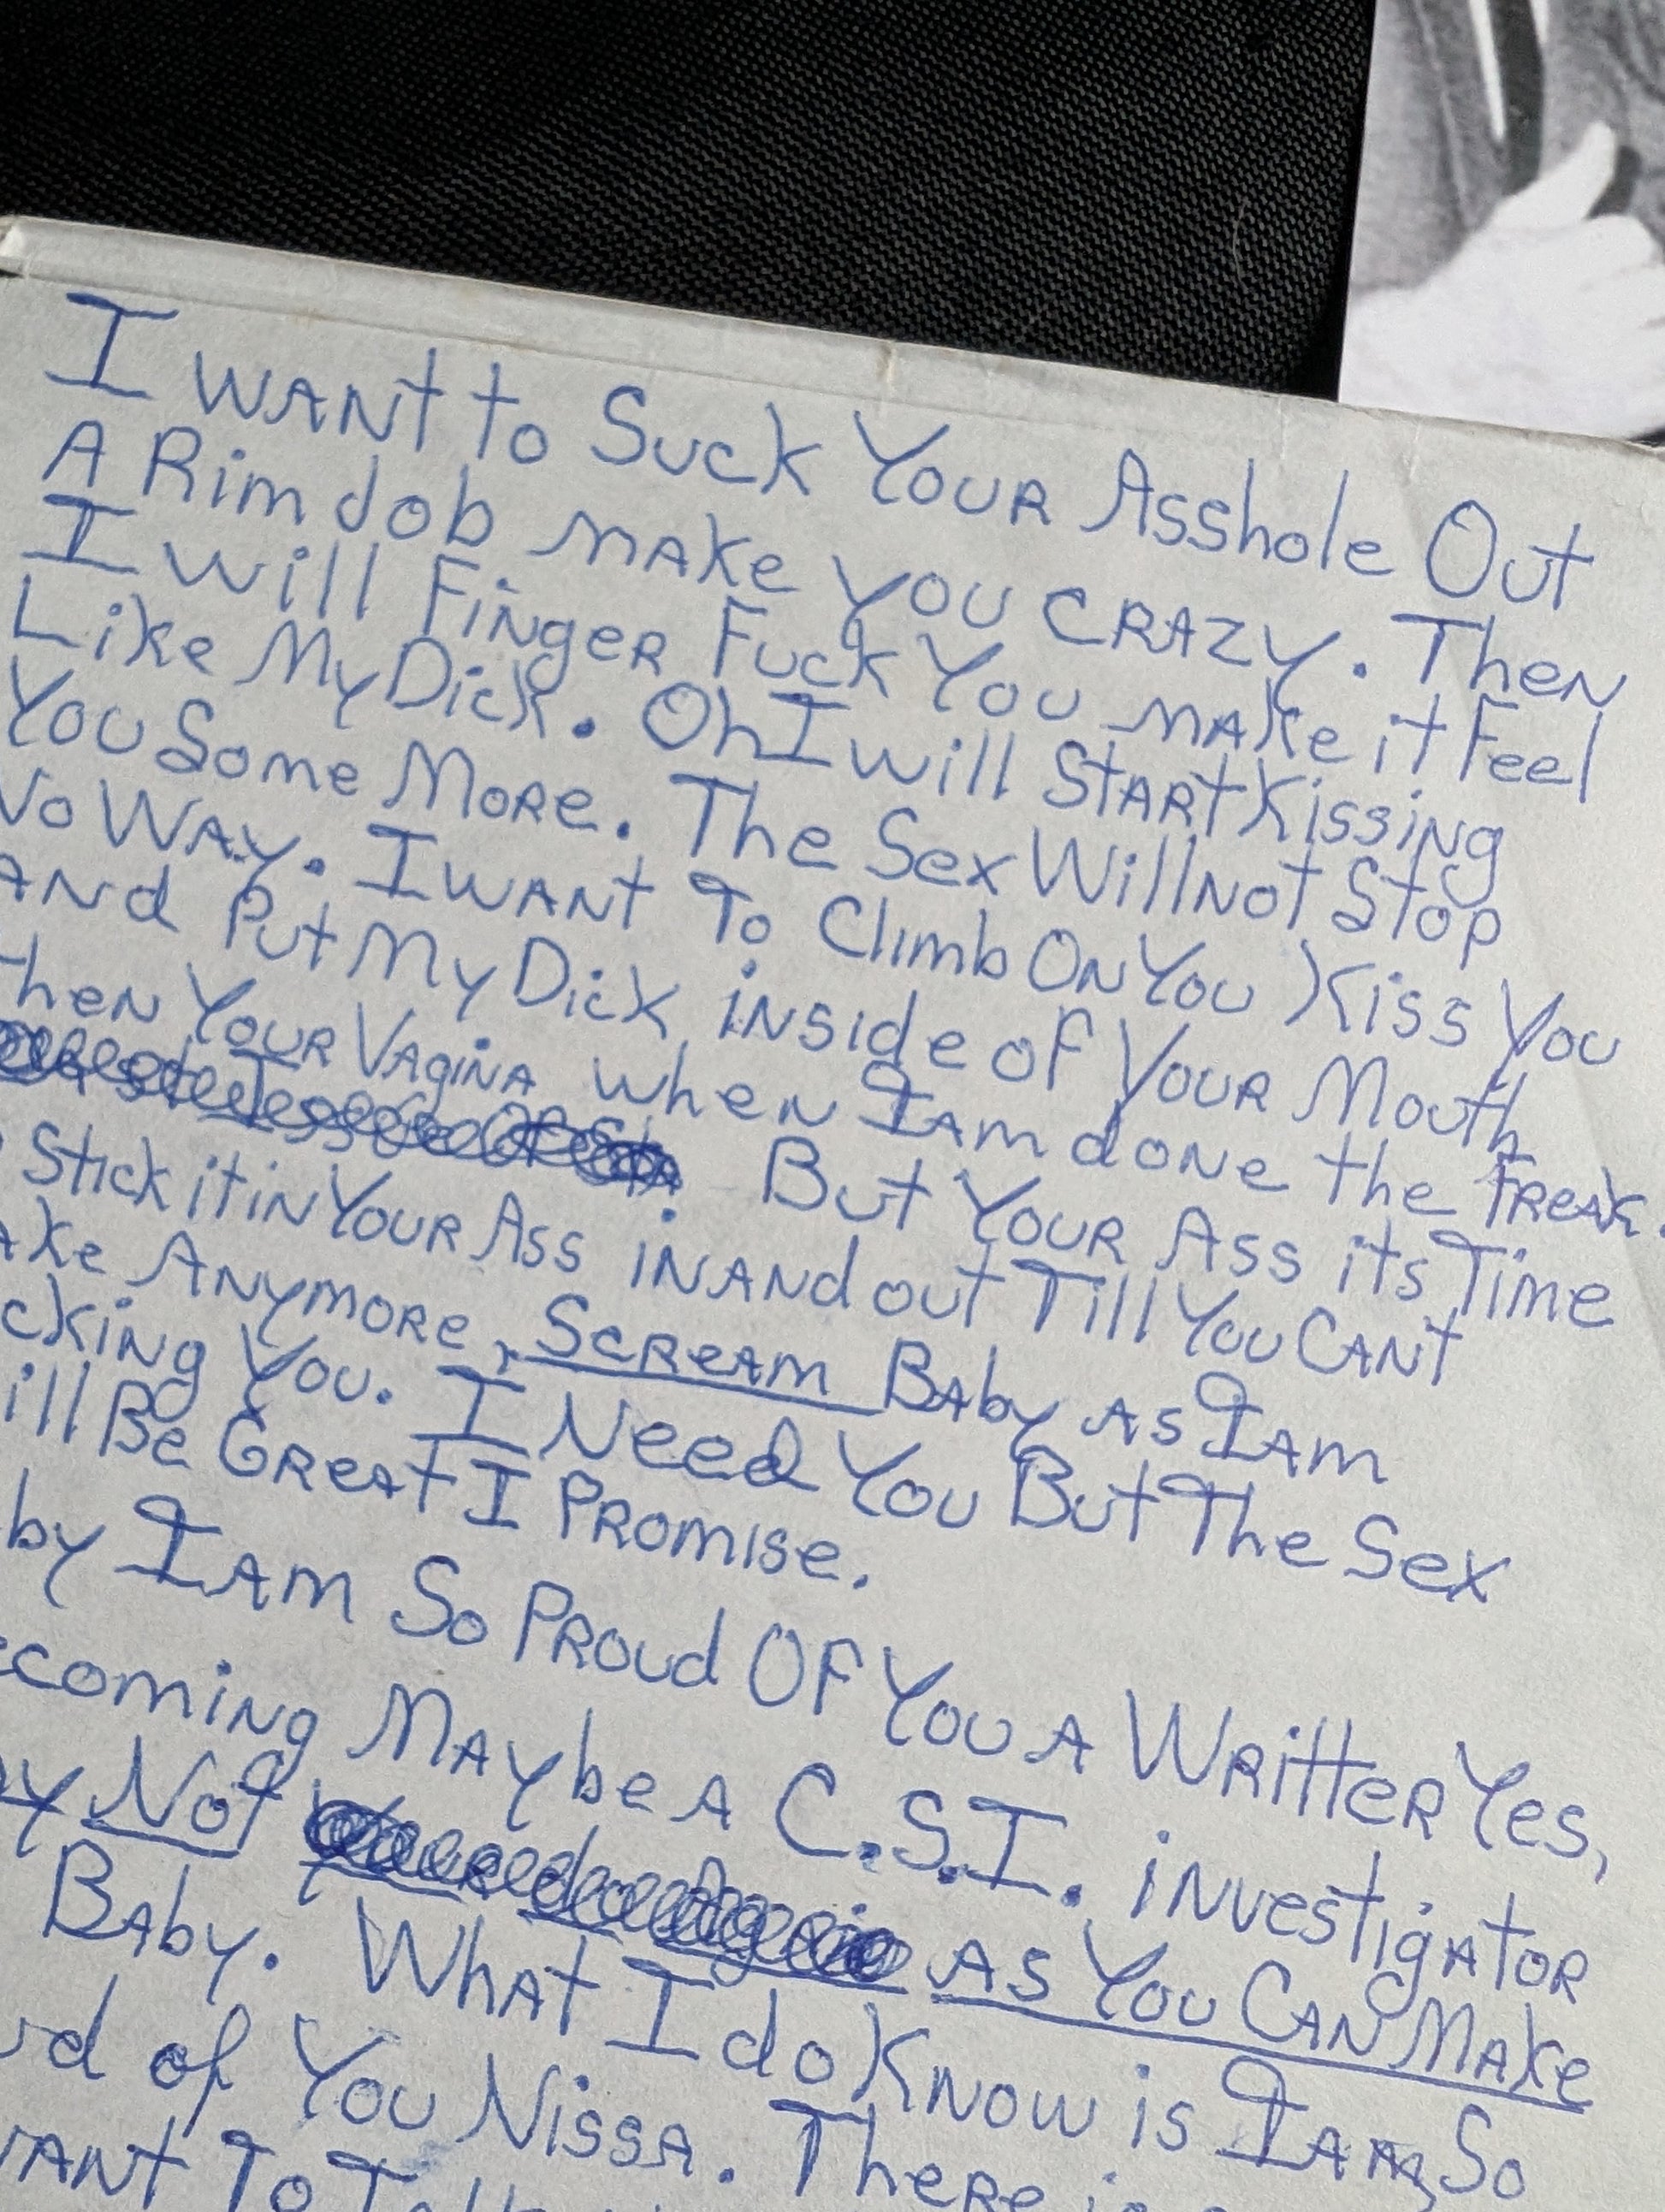 I WANT to Suck YOUR Asshole Out
A Rim Job MAKe YOU CRAZY. Then
I will FiNgeR Fuck YOU MAKe it Feel
Like My Dick. Oh I will StARt Kissing
You Some MoRe. The Sex Will Not Stop
No WAY. I WANT To Climb ON YOU Kiss You
AND Put My Dick iNside of YOUR Mouth
then YOUR VAgiNA when I Am done the FReAk.
But YOUR Ass its Time
Stick it in YOUR Ass iN ANd out Till You CANt
ANYMORe, ScReAm BAby As I Am
You. I Need You But The Sex
Be GReAt I PRomise.
I Am So PRoud OF YOU A WRitteR Yes,
MAYbe A C.S.I. iNvestigAtoR
Not As You CAN MAKe
BAby. WhAt I do KNow is I Am So
of You NissA. TheRe
To